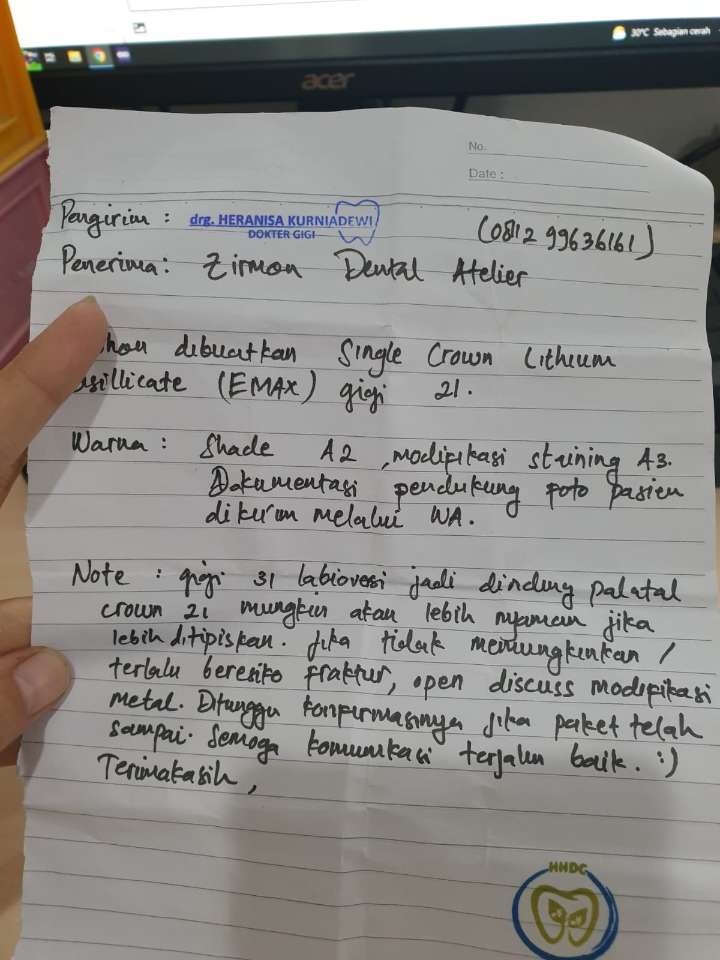 30°C Sebagian cerah
acer
No.
Date :
Pengirim : drg. HERANISA KURNIADEWI (0812 99636161)
DOKTER GIGI
Penerima : Zirmon Dental Atelier
hon dibuatkan Single Crown Lithium
sillicate (EMAX) gigi 21.
Warna : Shade A2 , modifikasi staining A3.
Dokumentasi pendukung foto pasien
dikirim melalui WA.
Note : gigi 31 labioversi jadi dinding palatal
crown 21 mungkin akan lebih nyaman jika
lebih ditipiskan. Jika tidak memungkinkan /
terlalu beresiko fraktur, open discuss modifikasi
metal. Ditunggu konfirmasinya jika paket telah
sampai. Semoga komunikasi terjalin baik. :)
Terimakasih,
HHDC